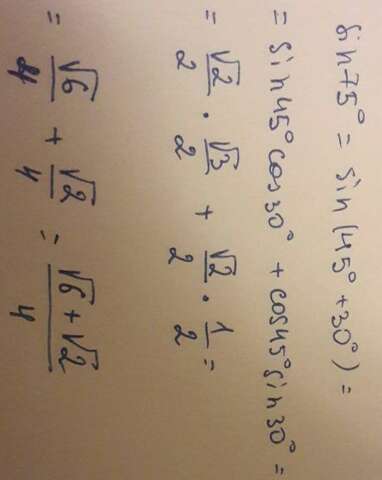 sin 75° = sin(45° + 30°) =
= sin45°cos30° + cos45°sin30° =
= √2/2 · √3/2 + √2/2 · 1/2 =
= √6/4 + √2/4 = (√6 + √2)/4